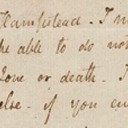 Hampstead. I m
be able to do not
Zone or death. I
else. if you can